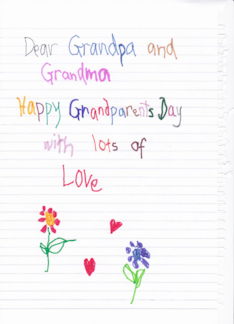 Dear Grandpa and
Grandma
Happy Grandparents Day
with lots of
Love